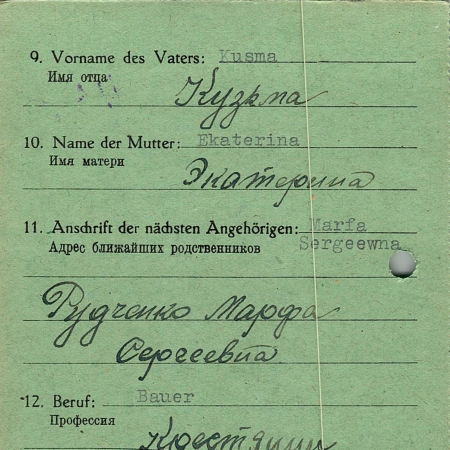 9. Vorname des Vaters: Kusma
Имя отца
Кузьма
10. Name der Mutter: Ekaterina
Имя матери
Экатерина
11. Anschrift der nächsten Angehörigen: Marfa
Адрес ближайших родственников Sergeewna
Рудченко Марфа
Сергеевна
12. Beruf: Bauer
Профессия
Крестянин